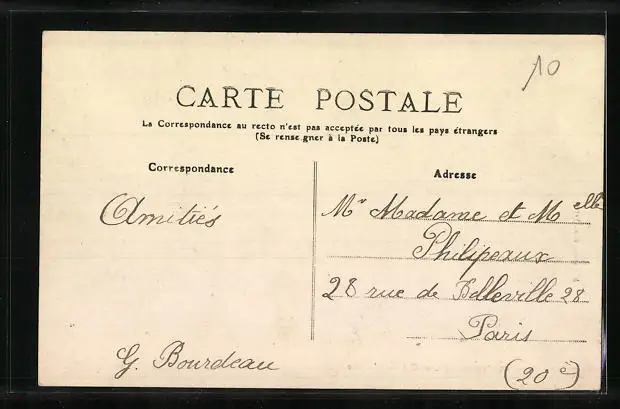 10
CARTE POSTALE
La Correspondance au recto n'est pas acceptée par tous les pays étrangers
(Se rense gner à la Poste)
Correspondance
Adresse
Amitiés
Mr Madame et Melle
Philipeaux
28 rue de Belleville 28
Paris
G. Bourdeau
(20e)